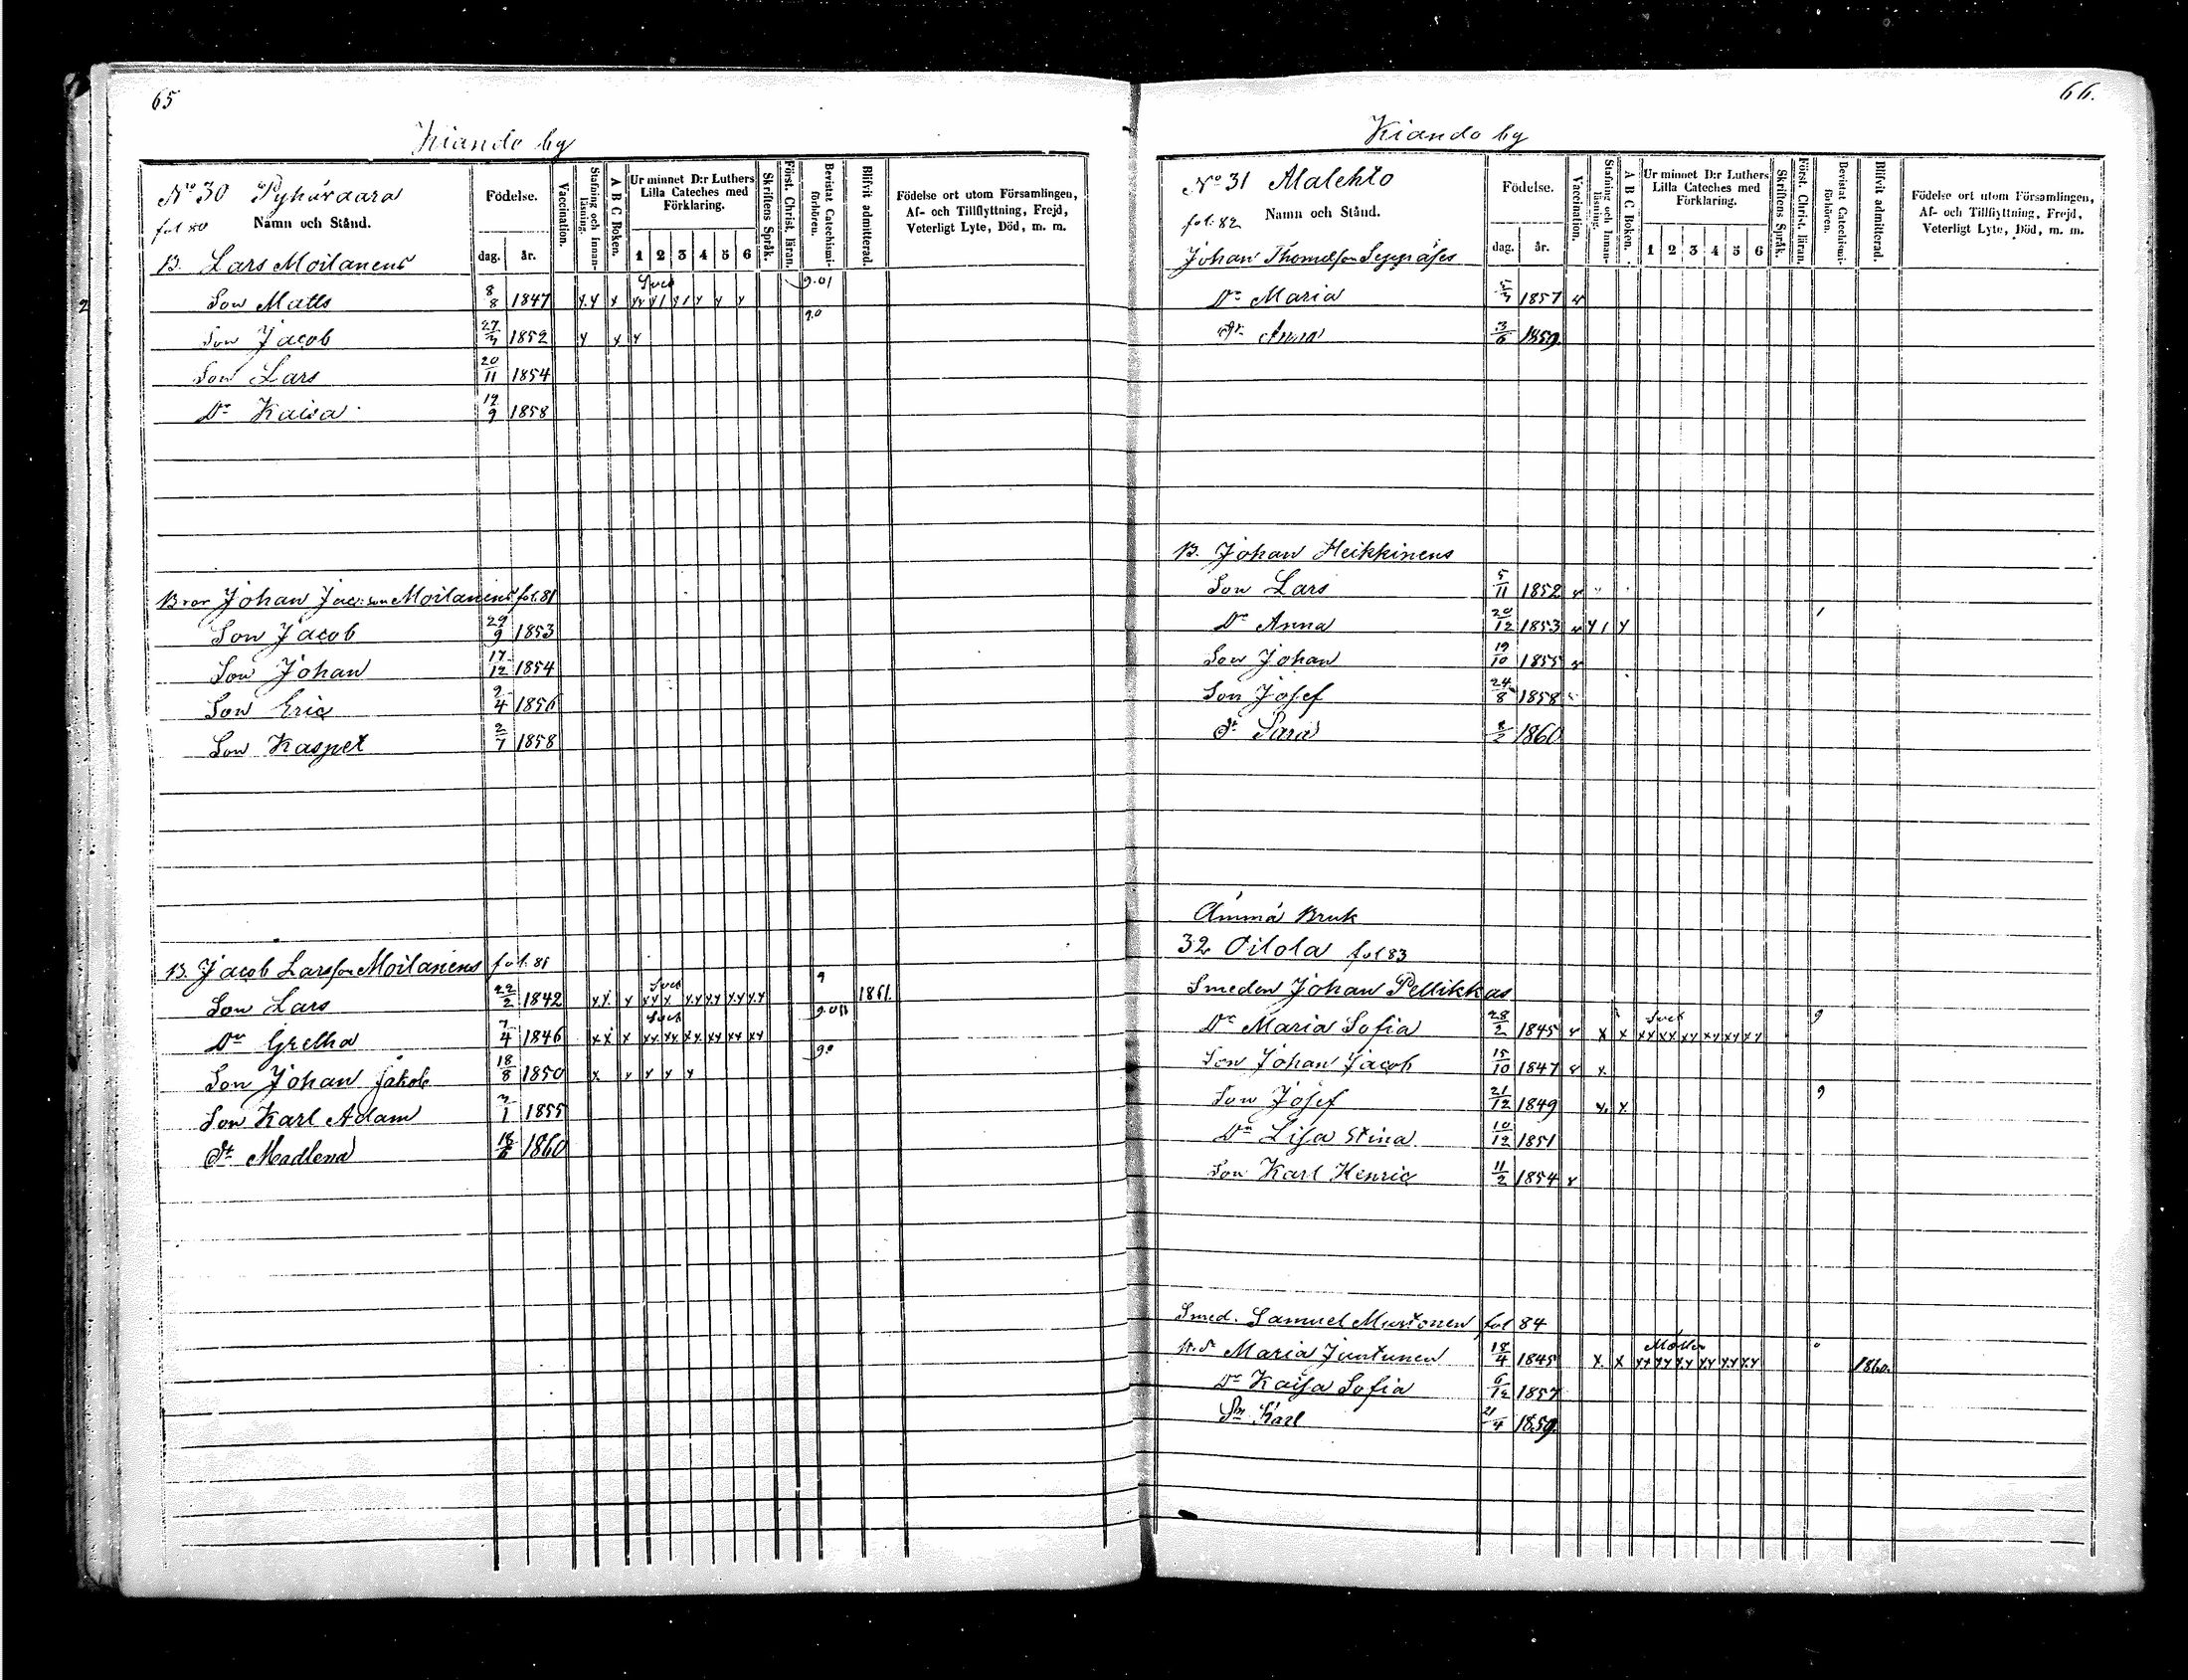 65
Kiando by
No 30 Pyhävaara
fol 80
Namn och Stånd.
Födelse.
dag. år.
Vaccination.
Stafning och Innanläsning.
A B C Boken.
Ur minnet D:r Luthers Lilla Cateches med Förklaring.
1 2 3 4 5 6
Skriftens Språk.
Först. Christ. läran.
Bevistat Catechismi-förhören.
Blifvit admitterad.
Födelse ort utom Församlingen,
Af- och Tillflyttning, Frejd,
Veterligt Lyte, Död, m. m.
B. Lars Moilanens
Son Matts 8/8 1847
Son Jacob 27/7 1852
Son Lars 20/11 1854
Dr Kaisa 19/9 1858
Bror Johan Jac:son Moilanens fol. 81
Son Jacob 29/9 1853
Son Johan 17/12 1854
Son Eric 2/4 1856
Son Kasper 2/7 1858
B. Jacob Larsson Moilanens fol. 81
Son Lars 22/2 1842 x x x xx x xx xx xx xx 9 1861.
Dr Gretha 7/4 1846 x x x xx xx xx xx xx xx
Son Johan Jakob 18/8 1850 x x x x x
Son Karl Adam 7/1 1855
Dr Madlena 1860
66.
Kiando by
No 31 Malehto
fol. 82
Namn och Stånd.
Födelse.
dag. år.
Vaccination.
Stafning och Innanläsning.
A B C Boken.
Ur minnet D:r Luthers Lilla Cateches med Förklaring.
1 2 3 4 5 6
Skriftens Språk.
Först. Christ. läran.
Bevistat Catechismi-förhören.
Blifvit admitterad.
Födelse ort utom Församlingen,
Af- och Tillflyttning, Frejd,
Veterligt Lyte, Död, m. m.
Johan Thomasson Seppäses
Dr Maria 1857
Dr Anna 3/6 1859
B. Johan Heikkinens
Son Lars 5/11 1852
Dr Anna 20/12 1853
Son Johan 19/10 1855
Son Josef 24/8 1858
Dr Sara 1860
Ämmä Bruk
32 Oilola fol 83
Smeden Johan Pellikkas
Dr Maria Sofia 28/2 1845 x x xx xx xx xx xx xx 9
Son Johan Jacob 15/10 1847 x
Son Josef 21/12 1849 x x 9
Dr Lisa Stina 10/12 1851
Son Karl Henric 11/2 1854
Smed. Samuel Mustonen fol 84
Maria Juntunen 18/4 1845 x x xx xx xx xx xx xx 1860.
Dr Kaisa Sofia 6/12 1857
Sn Karl 21/4 1859